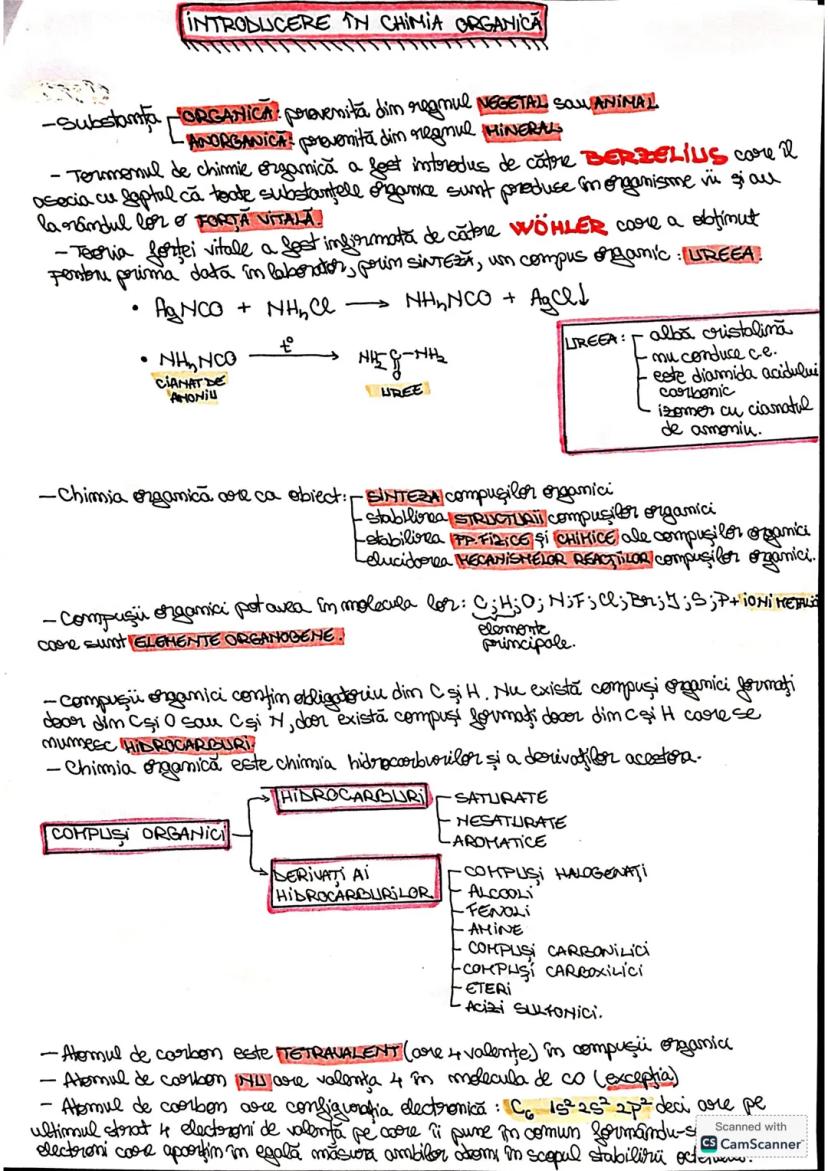 INTRODUCERE ÎN CHIMIA ORGANICĂ
-Substanță ORGANICĂ: provenită din regnul VEGETAL sau ANIMAL
ANORGANICĂ: provenită din regnul MINERAL
- Termenul de chimie organică a fost introdus de către BERZELIUS care îl
asocia cu faptul că toate substanțele organice sunt produse în organisme vii și au
la rândul lor o FORȚĂ VITALĂ.
- Teoria forței vitale a fost infirmată de către WÖHLER care a obținut
pentru prima dată în laborator, prin SINTEZĂ, un compus organic: UREEA.
• AgNCO + NH₄Cl → NH₄NCO + AgCl↓
• NH₄NCO t° → NH₂-C-NH₂
O
CIANAT DE
AMONIU
UREE
UREEA: albă cristalină
- nu conduce c.e.
- este diamida acidului
carbonic
- izomer cu cianatul
de amoniu.
- Chimia organică are ca obiect: SINTEZA compușilor organici
- stabilirea STRUCTURII compușilor organici
- stabilirea PP. FIZICE și CHIMICE ale compușilor organici
- elucidarea MECANISMELOR REACȚIILOR compușilor organici.
- Compușii organici pot avea în molecula lor: C; H; O; N; F; Cl; Br; I; S; P + IONI
care sunt ELEMENTE ORGANOGENE.
elemente
principale.
- Compușii organici conțin obligatoriu din C și H. Nu există compuși organici formați
doar din C și O sau C și N, dar există compuși formați doar din C și H care se
numesc HIDROCARBURI.
- Chimia organică este chimia hidrocarburilor și a derivaților acestora.
COMPUȘI ORGANICI
HIDROCARBURI
- SATURATE
- NESATURATE
- AROMATICE
DERIVAȚI AI
HIDROCARBURILOR
- COMPUȘI HALOGENAȚI
- ALCOOLI
- FENOLI
- AMINE
- COMPUȘI CARBONILICI
- COMPUȘI CARBOXILICI
- ETERI
- ACIZI SULFONICI.
- Atomul de carbon este TETRAVALENT (are 4 valențe) în compușii organici
- Atomul de carbon NU are valența 4 în molecula de CO (excepția)
- Atomul de carbon are configurația electronică: C₆ 1s² 2s² 2p² deci are pe
ultimul strat 4 electroni de valență pe care îi pune în comun
electroni care aparțin în egală măsură ambilor atomi în scopul stabilirii
Scanned with
CS CamScanner